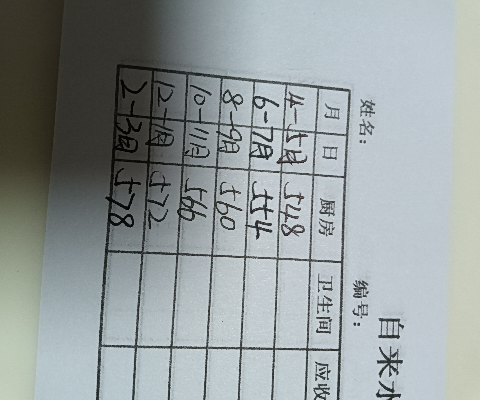 自来水
姓名： 编号：
月 日 厨房 卫生间 应收
4-5月 548
6-7月 554
8-9月 560
10-11月 566
12-1月 572
2-3月 578